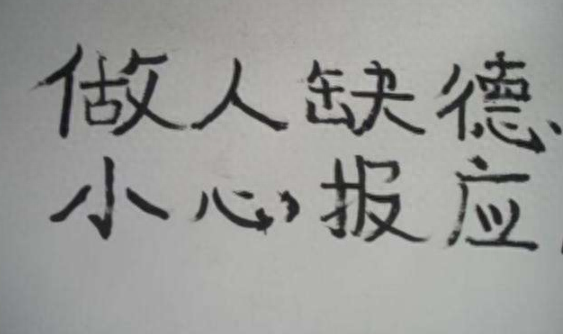 做人缺德
小心报应